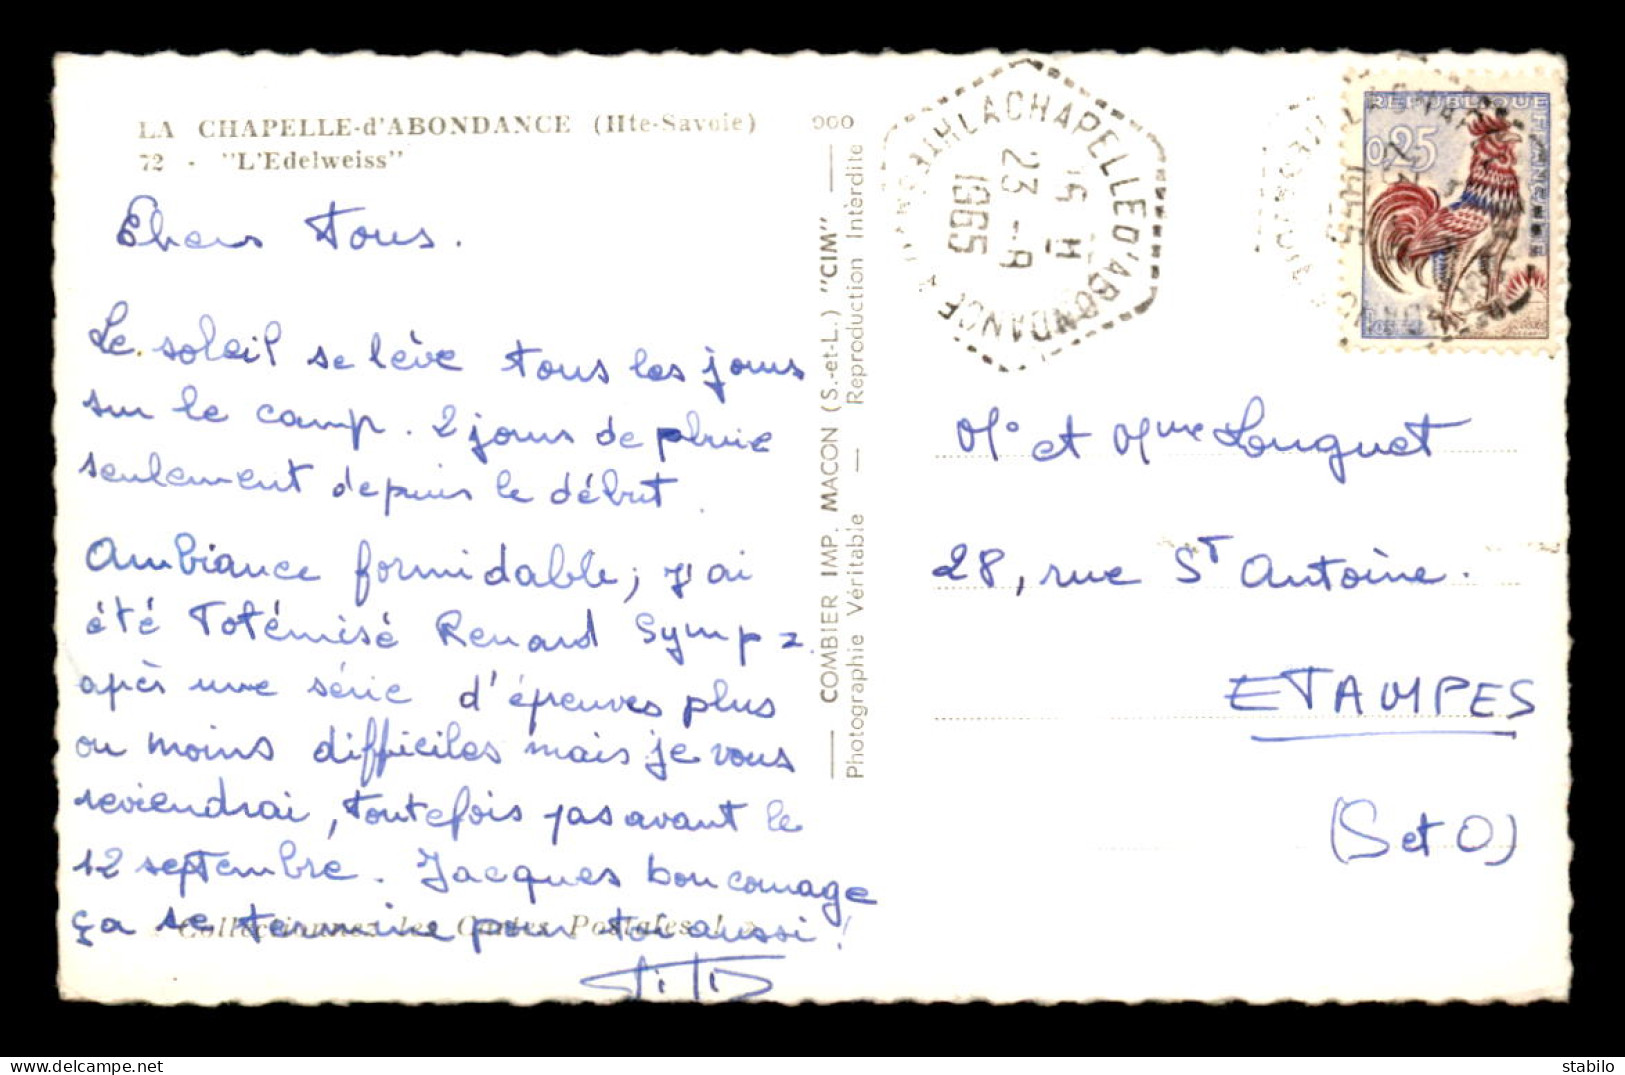 LA CHAPELLE-d'ABONDANCE (Hte-Savoie)
72 - "L'Edelweiss"
Chers Tous.
Le soleil se lève tous les jours
sur le camp. 2 jours de pluie
seulement depuis le début.
Ambiance formidable, j'ai
été Totémisé Renard Symp
après une série d'épreuves plus
ou moins difficiles mais je vous
reviendrai, toutefois pas avant le
12 septembre. Jacques bon courage
ça se termine pour toi aussi !
Collectionnez les Cartes Postales !
COMBIER IMP. MACON (S.-et-L.) "CIM"
Photographie Véritable — Reproduction Interdite
LA CHAPELLE D'ABONDANCE
23 - 8
1965
REPUBLIQUE FRANCAISE
0,25
Mr et Mme Longuet
28, rue St Antoine.
ETAMPES
(S et O)